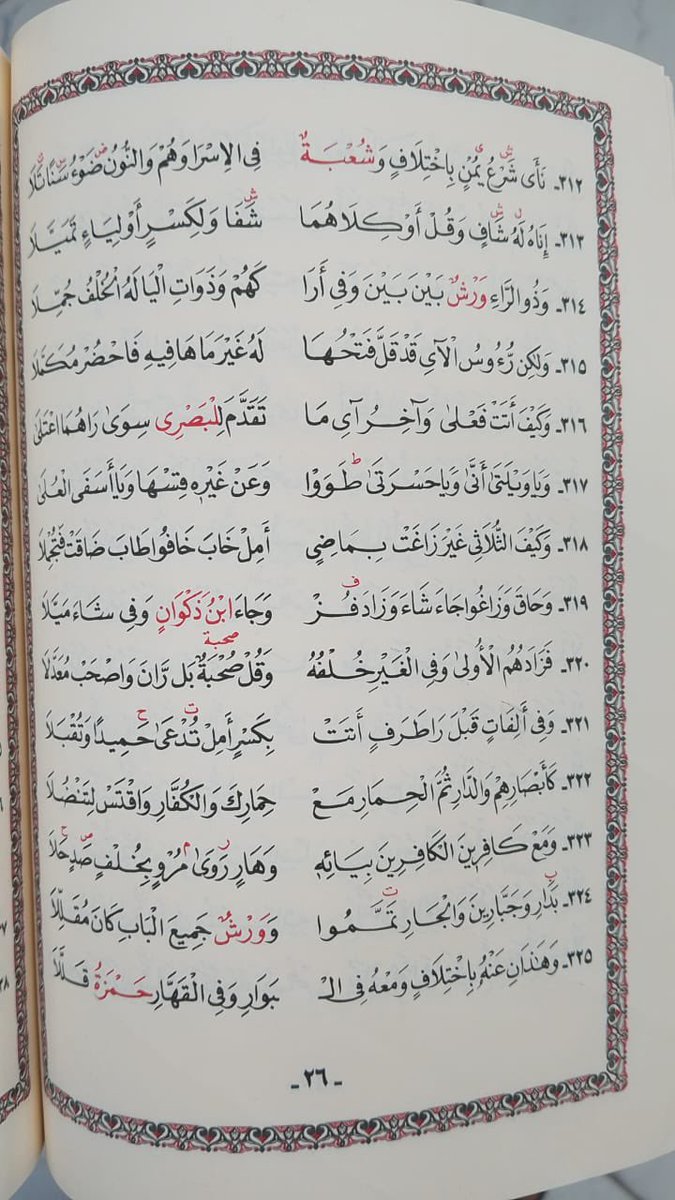 ٣١٢- نَأَى شَرْعُ يُمْنٍ بِاخْتِلَافٍ وَشُعْبَةٌ فِي الِاسْرَا وَهُمْ وَالنُّونُ ضَوْءُ سَنًا تَلَا
٣١٣- إِنَاهُ لَهُ شَافٍ وَقُلْ أَوْ كِلَاهُمَا شَفَا وَلِكَسْرٍ أَوْ لِيَاءٍ تَمَيَّلَا
٣١٤- وَذُو الرَّاءِ وَرْشٌ بَيْنَ بَيْنَ وَفِي أَرَا كَهُمْ وَذَوَاتِ الْيَا لَهُ الْخُلْفُ جُمِّلَا
٣١٥- وَلَكِنْ رُءُوسُ الْآيِ قَدْ قَلَّ فَتْحُهَا لَهُ غَيْرَ مَا هَا فِيهِ فَاحْضُرْ مُكَمَّلَا
٣١٦- وَكَيْفَ أَتَتْ فَعْلَى وَآخِرُ آيِ مَا تَقَدَّمَ لِلْبَصْرِي سِوَى رَاهُمَا اعْتَلَى
٣١٧- وَيَا وَيْلَتَى أَنَّى وَيَا حَسْرَتَى طَوَوْا وَعَنْ غَيْرِهِ قِسْهَا وَيَا أَسَفَى الْعُلَى
٣١٨- وَكَيْفَ الثُّلَاثِي غَيْرَ زَاغَتْ بِمَاضِيٍ أَمِلْ خَابَ خَافُوا طَابَ ضَاقَتْ فَتُجْمِلَا
٣١٩- وَحَاقَ وَزَاغُوا جَاءَ شَاءَ وَزَادَ فُزْ وَجَاءَ ابْنُ ذَكْوَانٍ وَفِي شَاءَ مَيَّلَا
٣٢٠- فَزَادَهُمُ الْأُولَى وَفِي الْغَيْرِ خُلْفُهُ وَقُلْ صُحْبَةٌ بَل رَّانَ وَاصْحَبْ مُعَدَّلَا
٣٢١- وَفِي أَلِفَاتٍ قَبْلَ رَا طَرَفٍ أَتَتْ بِكَسْرٍ أَمِلْ تُدْعَى حَمِيداً وَتُقْبَلَا
٣٢٢- كَأَبْصَارِهِمْ وَالدَّارِ ثُمَّ الْحِمَارِ مَعْ حِمَارِكَ وَالْكُفَّارِ وَاقْتَسْ لِتَنْضُلَا
٣٢٣- وَمَعْ كَافِرِينَ الْكَافِرِينَ بِيَائِهِ وَهَارٍ رَوَى مُرْوٍ بِخُلْفٍ صَدٍ حَلَا
٣٢٤- بَدَارِ وَجَبَّارِينَ وَالْجَارِ تَمَّمُوا وَوَرْشٌ جَمِيعَ الْبَابِ كَانَ مُقَلِّلَا
٣٢٥- وَهَذَانِ عَنْهُ بِاخْتِلَافٍ وَمَعْهُ فِي الْـ بَوَارِ وَفِي الْقَهَّارِ حَمْزَةُ قَلَّلَا
- ٢٦ -